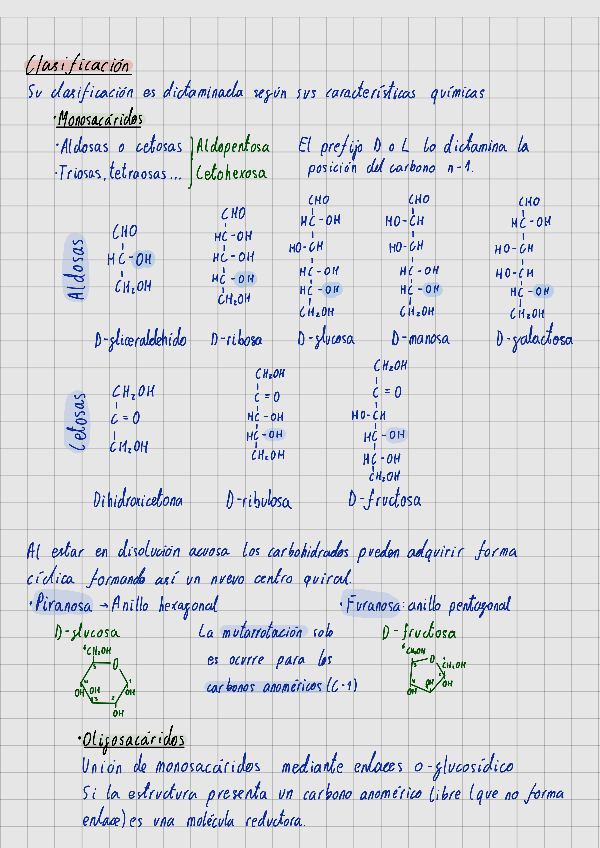 Clasificación
Su clasificación es dictaminada según sus características químicas
·Monosacáridos
·Aldosas o cetosas
·Triosas, tetraosas...
Aldopentosa
Cetohexosa
El prefijo D o L lo dictamina la
posición del carbono n-1.
Aldosas
CHO
HC-OH
CH₂OH
D-gliceraldehído
CHO
HC-OH
HC-OH
HC-OH
CH₂OH
D-ribosa
CHO
HC-OH
HO-CH
HC-OH
HC-OH
CH₂OH
D-glucosa
CHO
HO-CH
HO-CH
HC-OH
HC-OH
CH₂OH
D-manosa
CHO
HC-OH
HO-CH
HO-CH
HC-OH
CH₂OH
D-galactosa
Cetosas
CH₂OH
C=O
CH₂OH
Dihidroxicetona
CH₂OH
C=O
HC-OH
HC-OH
CH₂OH
D-ribulosa
CH₂OH
C=O
HO-CH
HC-OH
HC-OH
CH₂OH
D-fructosa
Al estar en disolución acuosa los carbohidratos pueden adquirir forma
cíclica formando así un nuevo centro quiral.
·Piranosa → Anillo hexagonal
·Furanosa: anillo pentagonal
D-glucosa
⁶CH₂OH
5
O
4
1
OH
OH
OH
3
2
OH
La mutarrotación solo
es ocurre para los
carbonos anoméricos (C-1)
D-fructosa
⁶CH₂OH
O
CH₂OH
5
OH
OH
OH
·Oligosacáridos
Unión de monosacáridos mediante enlaces o-glucosídico
Si la estructura presenta un carbono anomérico libre (que no forma
enlace) es una molécula reductora.